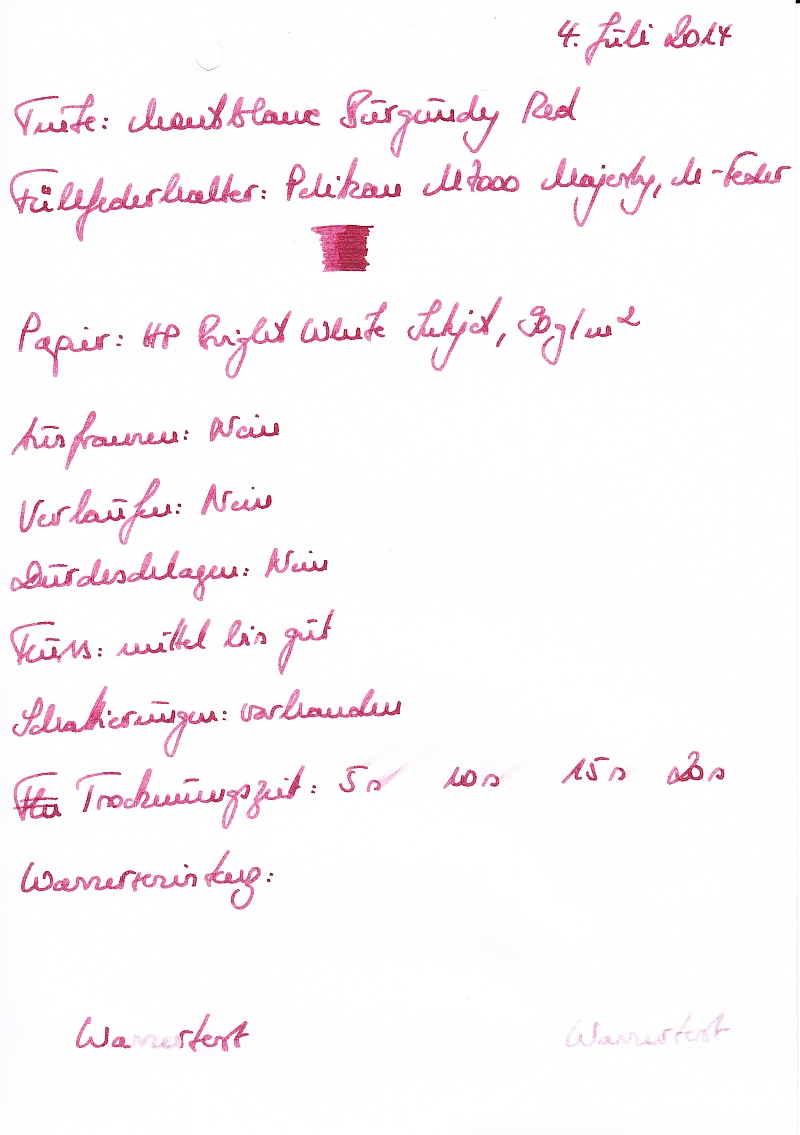 4. Juli 2014
Tinte: Montblanc Burgundy Red
Füllfederhalter: Pelikan M7000 Majesty, M-Feder
Papier: HP Bright White Inkjet, 90g/m²
Ausfransen: Nein
Verlaufen: Nein
Durchschlagen: Nein
Fluss: mittel bis gut
Schattierungen: vorhanden
Trocknungszeit: 5s 10s 15s 20s
Wasserfestigk:
Wassertest Wassertest